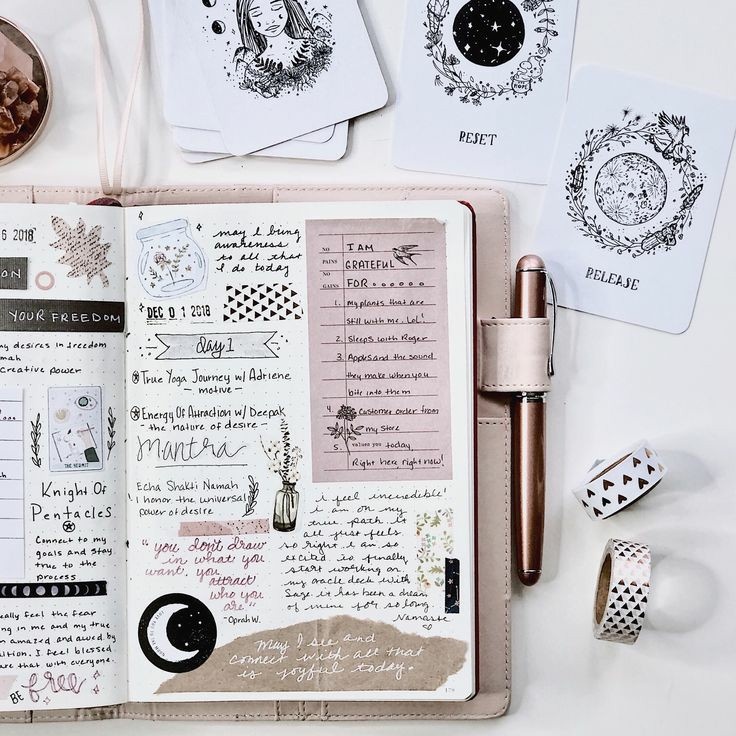 RESET
RELEASE
HOPE
6 2018
ON
YOUR FREEDOM
my desires in freedom
mah
creative power
THE HERMIT
Knight Of
Pentacles
Connect to my
goals and stay
true to the
process
eally feel the fear
ing in me and my true
m amazed and awed by
uition. I feel blessed
are that with everyone.
BE free
may I bring
awareness
to all that
I do today
DEC 01 2018
Day 1
True Yoga Journey w/ Adriene
- motive -
Energy Of Attraction w/ Deepak
- the nature of desire -
Mantra
Echa Shakti Namah
I honor the universal
power of desire
"you don't draw
in what you
want, you
attract
who you
are"
~Oprah W.
NO I AM
PAINS GRATEFUL
NO
GAINS FOR ......
1. My plants that are
still with me. LOL!
2. Sleeps with Roger
3. Apples and the sound
they make when you
bite into them
4. Customer order from
my store
5. values you today
Right here, right now!
I feel incredible!
I am on my
true path. It
all just feels
so right. I am so
excited to finally
start working on
my oracle deck with
Suze it has been a dream
of mine for so long.
Namaste
May I see and
connect with all that
is joyful today.
179